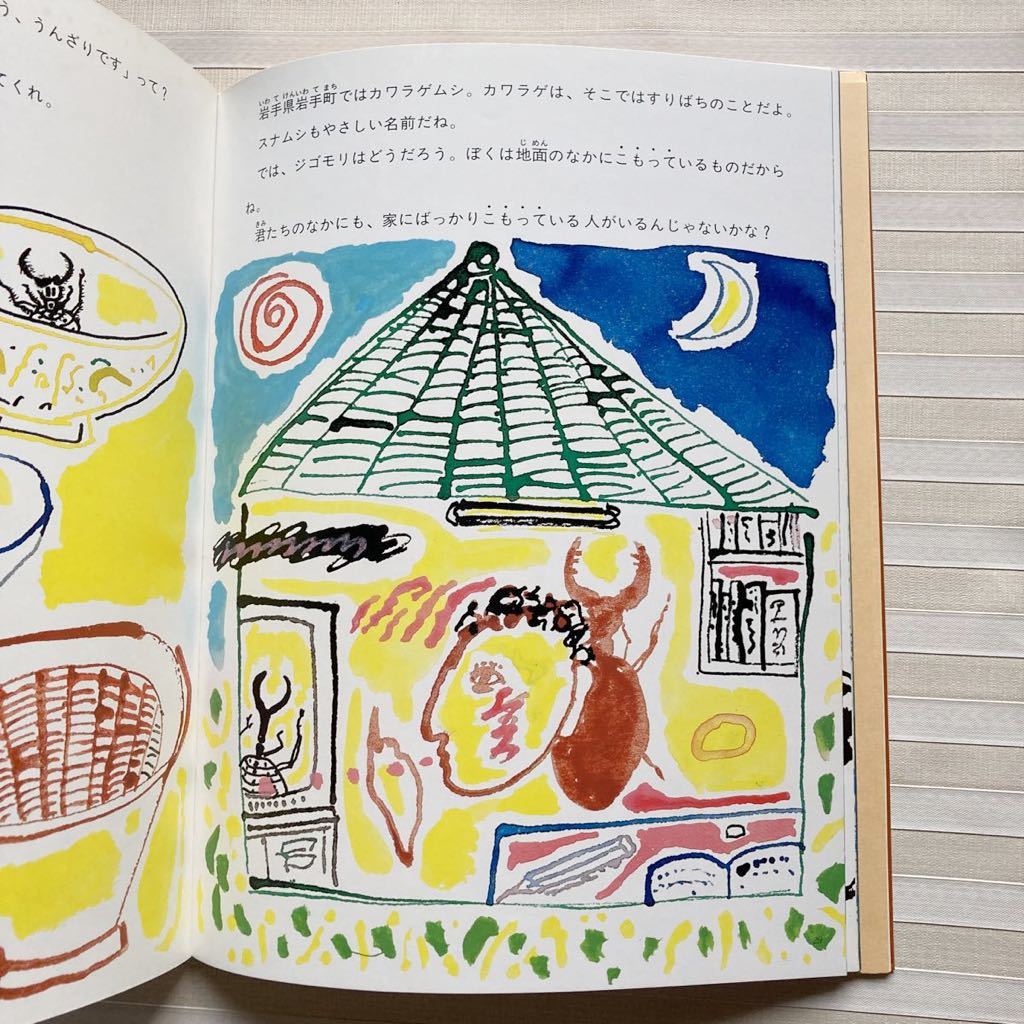 う、うんざりです」って？
てくれ。
岩手県岩手町ではカワラゲムシ。カワラゲは、そこではすりばちのことだよ。
スナムシもやさしい名前だね。
では、ジゴモリはどうだろう。ぼくは地面のなかにこもっているものだから
ね。
君たちのなかにも、家にばっかりこもっている人がいるんじゃないかな？